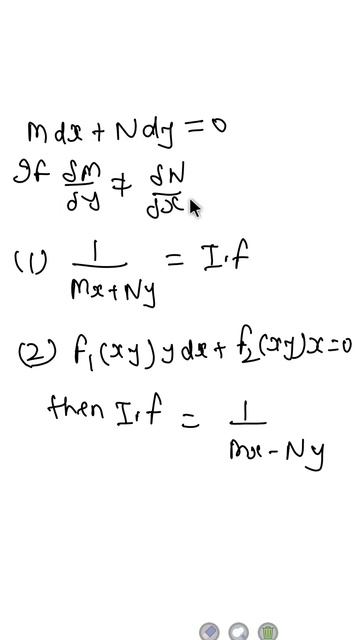 Mdx + Ndy = 0
If ∂M/∂y ≠ ∂N/∂x
(1) 1/(Mx + Ny) = I.f
(2) f₁(xy) y dx + f₂(xy) x = 0
then I.f = 1/(Mx - Ny)